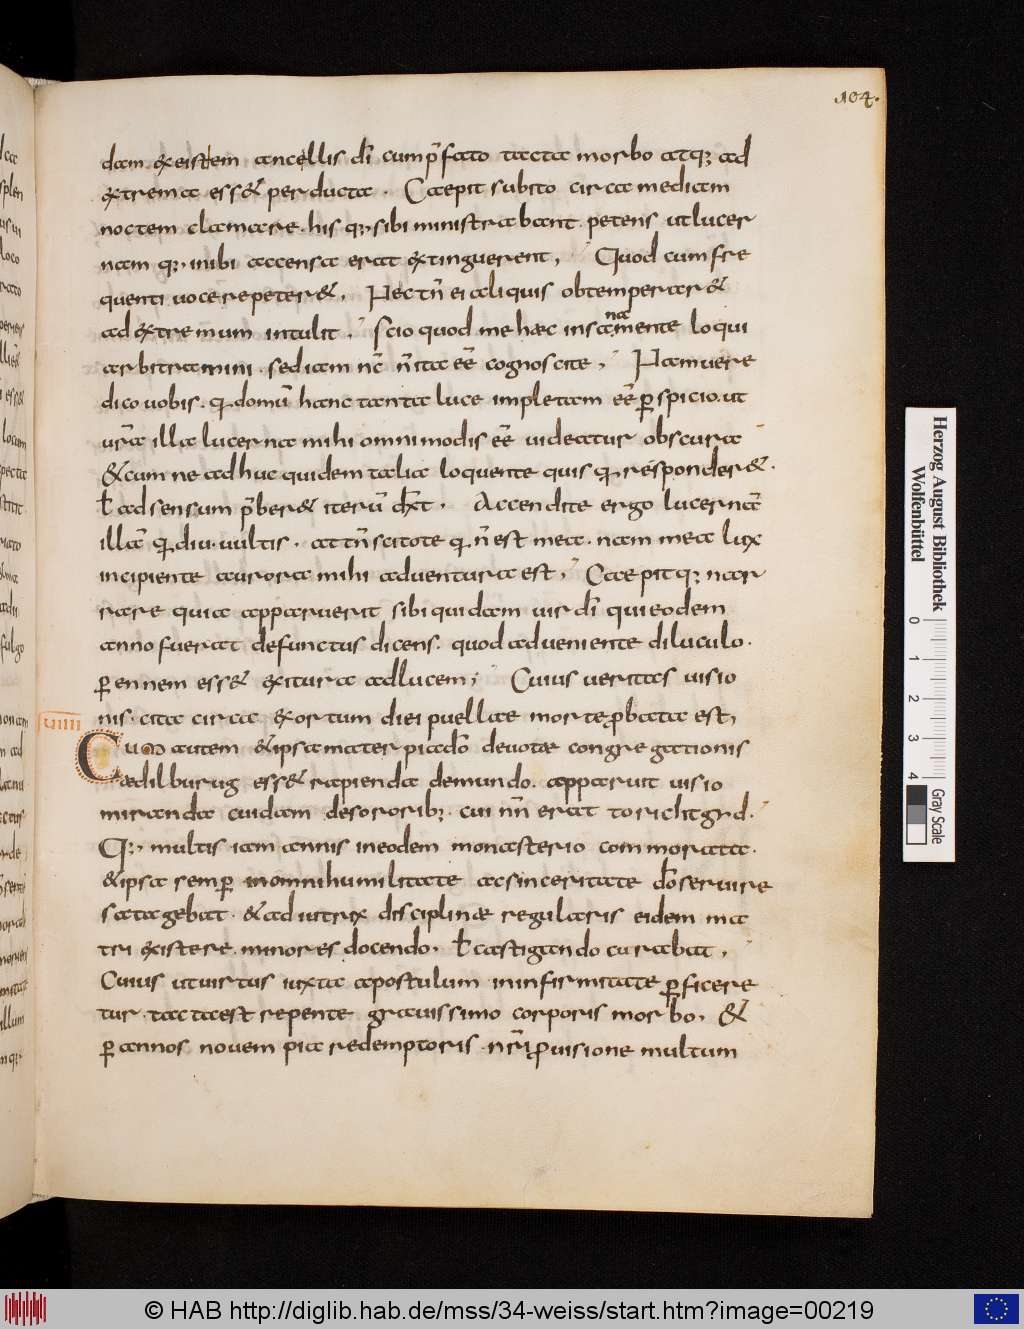 104.
dam ex eistem ancellis dī cum p̄fato tacta morbo atq; ad
extrema esset perducta . Caepit subito circa mediam
noctem clamare . his q; sibi ministrabant . petens ut lucer
nam q; inibi accensa erat extinguerent , Quod cum fre
quenti uoce repeteret , Nec tn̄ ei aliquis obtemperaret
ad extremum intulit . Scio quod me haec insana mente loqui
arbitramini . sed iam nc̄ n̄ ita eē cognoscite , Nam uere
dico uobis . qđ domū hanc tanta luce impletam eē ꝑspicio . ut
urā illa lucerna mihi omnimodis eē uideatur obscura
& cum ne adhuc quidem talia loquente quisq responderet .
ł adsensum p̄beret iterū dxt̄ . Accendite ergo lucernā
illā qđ diu . uultis . at tn̄ scitote q n̄ est mea . nam mea lux
incipiente aurora mihi aduentura est , Caepitq; nar
rare quia apparuerit sibi quidam uir dī qui eodem
anno fuerat defunctus dicens . quod adueniente diluculo .
ꝑennem esset exitura ad lucem , Cuius ueritas uisio
nis . cita circa exortum diei puellae morte ꝓbata est ,
uiiii
Cum autem & ipsa mater pia dō deuotae congregationis
aedilburug esset rapienda de mundo . apparuit uisio
miranda cuidam de sororib; . cui nn̄ erat torichtgyd .
Q; multis iam annis in eodem monasterio commorata .
& ipsa semꝑ in omni humilitate ac sinceritate dō seruire
satagebat . & adiutrix disciplinae regularis eidem ma
tri existere . minores docendo , ł castigando curabat ,
Cuius ut uirtus iuxta apostulum in infirmitate ꝑficere
tur . tacta est repente grauissimo corporis morbo , &
ꝑ annos nouem pia redemptoris nr̄i ꝓuisione multum
Herzog August Bibliothek
Wolfenbüttel
0 1 2 3 4
Gray Scale
© HAB http://diglib.hab.de/mss/34-weiss/start.htm?image=00219